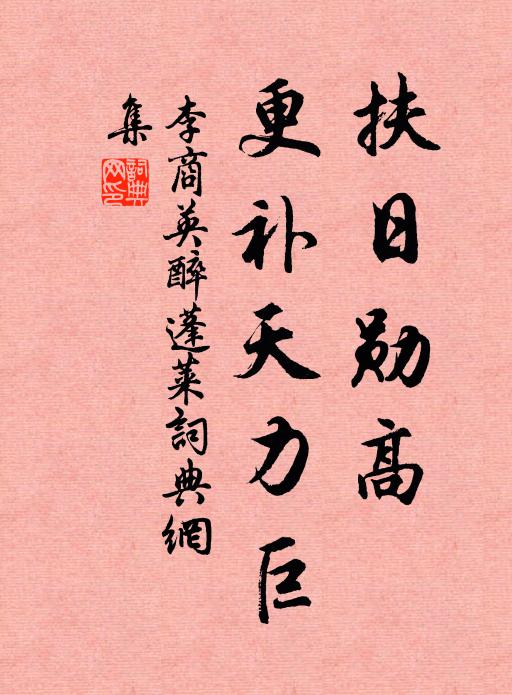 扶日勋高
更补天力巨
李商英醉蓬莱词典網
集
詞典網印